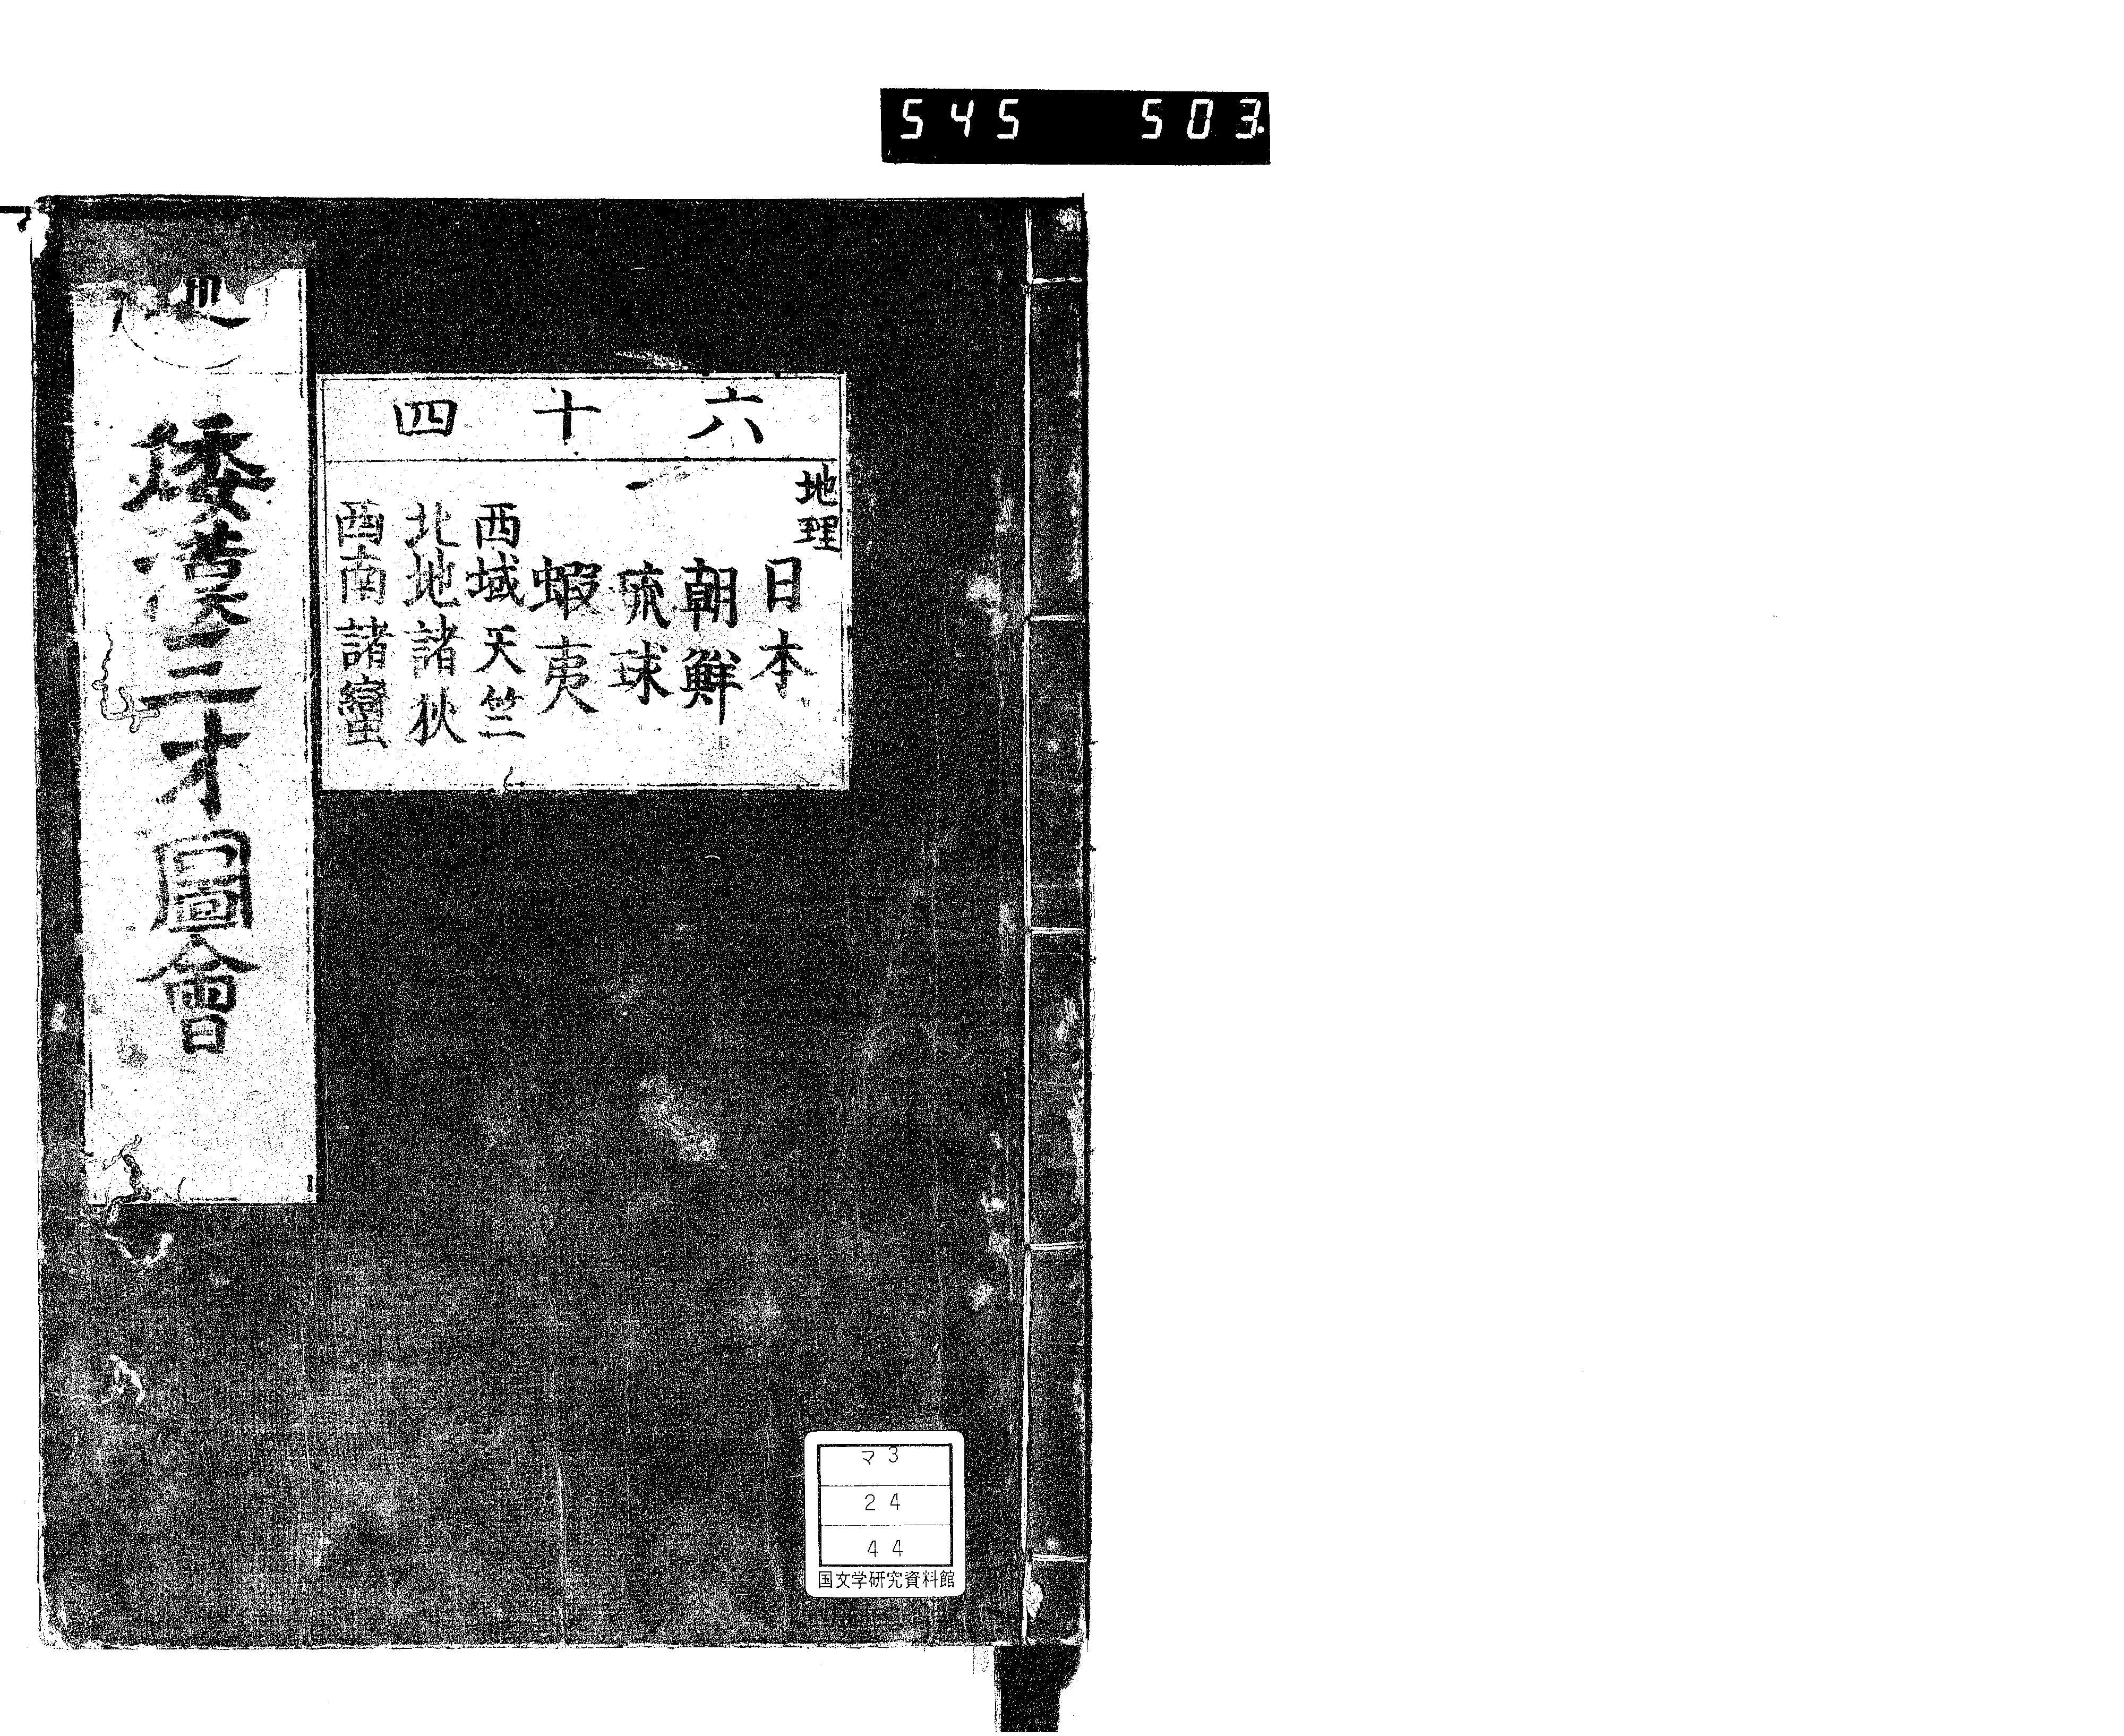 545 503.
六十四
地理
日本
朝鮮
琉球
蝦夷
西域天竺
北地諸狄
西南諸蠻
倭漢三才圖會
マ3
24
44
国文学研究資料館